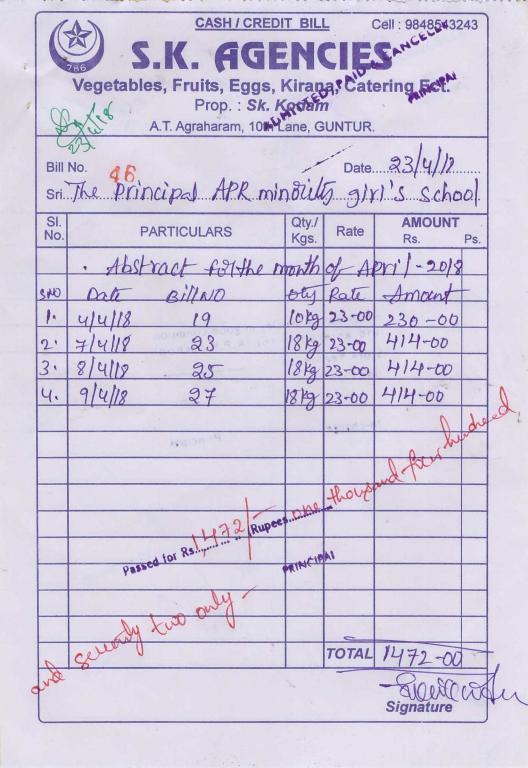 CASH / CREDIT BILL Cell : 9848543243
786
S.K. AGENCIES
Vegetables, Fruits, Eggs, Kirana, Catering Ect.
Prop. : Sk.
A.T. Agraharam, Lane, GUNTUR.
ADMITTED, PAID & CANCELLED
PRINCIPAL
23/4/18
Bill No. 46 Date 23/4/18
Sri. The principal APR minority girl's school
Sl. No. PARTICULARS Qty./ Kgs. Rate AMOUNT Rs. Ps.
Abstract for the month of April-2018
SNO Date Bill NO Qty Rate Amount
1. 4/4/18 19 10kg 23-00 230-00
2. 7/4/18 23 18kg 23-00 414-00
3. 8/4/18 25 18kg 23-00 414-00
4. 9/4/18 27 18kg 23-00 414-00
Passed for Rs. 1472/- Rupees one thousand four hundred
PRINCIPAL
and seventy two only -
TOTAL 1472-00
Signature